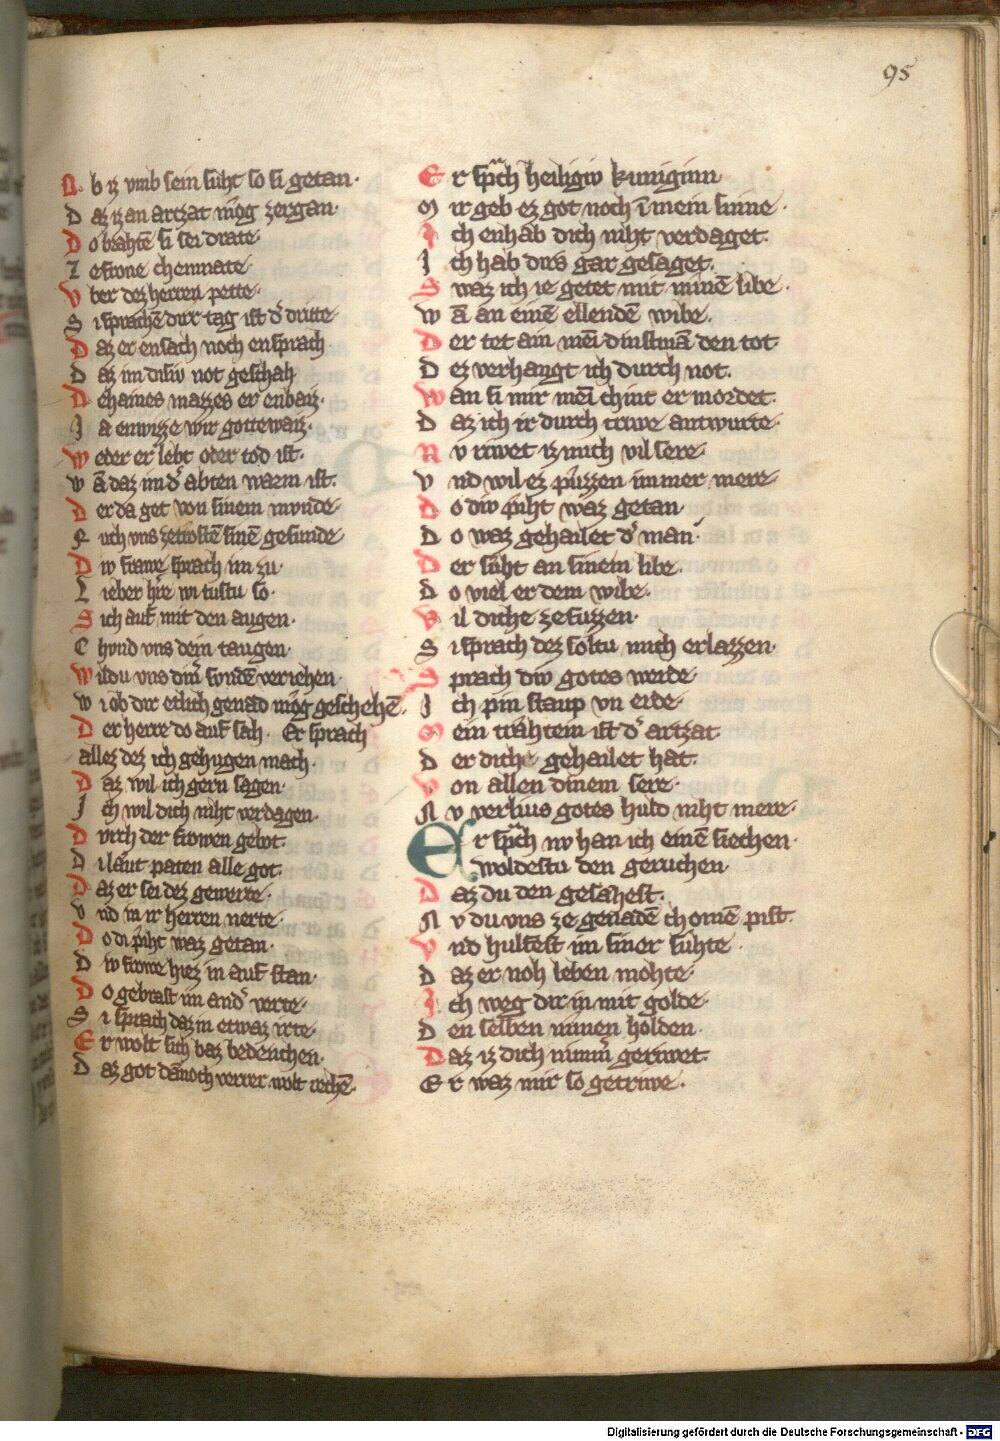 95
A b iz vmb sein suht so si getan·
D az iz an artzat mög zergan·
D o brahtē si sei drate·
Z e frone chemnate·
V ber dez herren pette·
S i sprachē dur tag ist d͛ dritte·
D az er ensach noch ensprach·
D az im disiv not geschah
D ehaines mazzes er enbaiz·
J a enwizze wir gottewaiz·
W eder er lebt oder tod ist·
W ā daz im d͛ abten warm ist·
D er da get von sinem munde·
R uch vns zetrostē sinē gesunde·
D iv frawe sprach im zu·
L ieber hr͛e wi tustu so·
S ich auf mit den augen·
C hvnd vns dein taugen·
W ildu vns din͛ svndē veriehen·
W i ob dir etlich genad mög geschehē·
D er herre do auf sach· Er sprach
allez dez ich gehugen mach·
D az wil ich gern sagen·
J ch wil dich niht verdagen·
D vrch der frowen gebot·
D i laut paten alle got·
D az er sei dez gewerte·
V nd in ir herren nerte·
D o di piht waz getan·
D iv frowe hiez in auf stan·
D o gebrast im and͛ verte·
S i sprach daz in etwaz irte·
E r wolt sich baz bedenchen·
D az got dānoch verrer wolt rechē·
E r sprͣch heiligiv kunigiun
M ir geb ez got noch ī mein sinne·
J ch enhab dich niht verdaget·
J ch hab dirs gar gesaget·
S waz ich ie getet mit minē libe·
W ā an einē ellendē wibe·
D er tet ain mēi dinstmā den tot
D ez verhangt ich durch not·
W an si mir mēi chint er mordet·
D az ich ir durch trwe antwurte·
N v riwet iz mich vil sere·
V nd wil ez püzzen immer mere·
D o div piht waz getan
D o waz gehailet d͛ man·
D er süht an sinem libe·
D o viel er dem wibe·
V il diche zefuzzen·
S i sprach dez soltu mich erlazzen·
S prach div gotes werde·
J ch pin staup vn erde·
M ein trähtein ist d͛ artzat
D er diche gehailet hat·
V on allen dinem sere·
N v verlius gotes huld niht mere·
Er sprͣch nv han ich einē siechen·
woldestu den geruchen·
D az du den gesahest·
N v du vns ze genadē chomē pist·
V nd hulfest im siner sühte·
D az er noh leben mohte·
J ch weg dir in mit golde·
D en selben minen holden·
D az iz dich nimm͛ geriwet·
E r waz mir so getriwe·
Digitalisierung gefördert durch die Deutsche Forschungsgemeinschaft - DFG